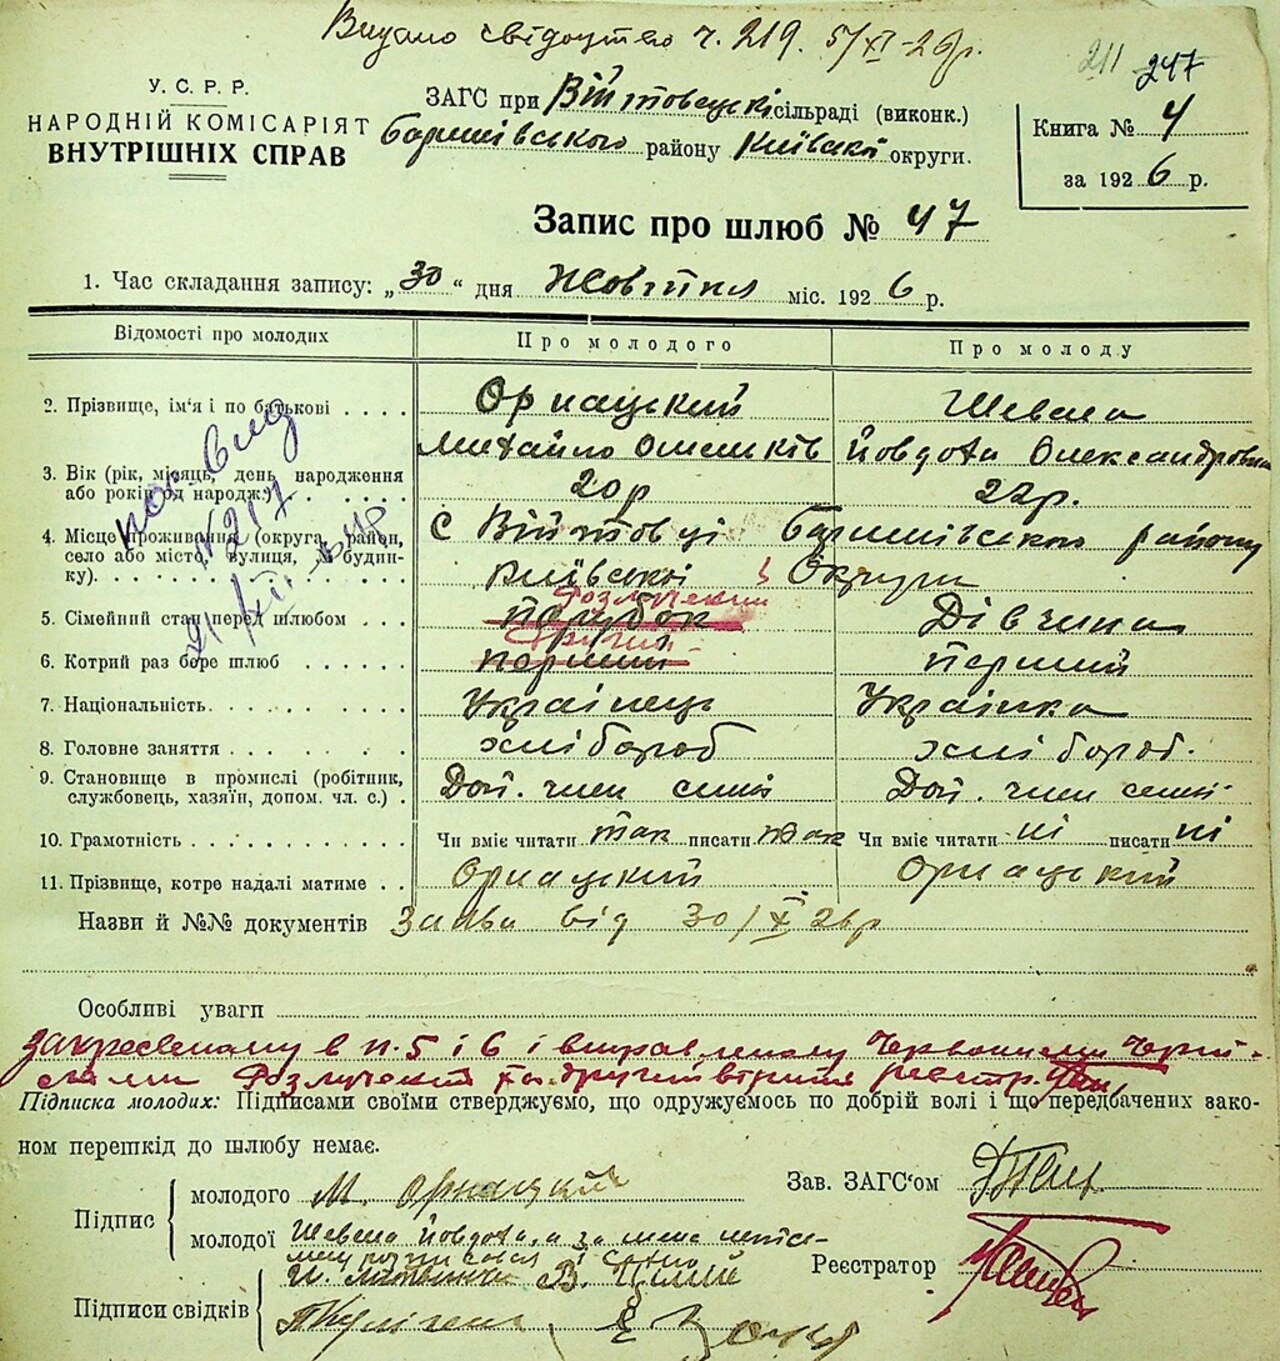 Видано свідоцтво ч. 219. 5/XI-26р.
211 247
У. С. Р. Р.
НАРОДНІЙ КОМІСАРІЯТ
ВНУТРІШНІХ СПРАВ
ЗАГС при Війтовецькі сільраді (виконк.)
Баришівського району Київської округи.
Книга № 4
за 1926 р.
Запис про шлюб № 47
1. Час складання запису: „30“ дня Жовтня міс. 1926 р.
Відомості про молодих Про молодого Про молоду
2. Прізвище, ім'я і по батькові . . . . Орнацький Шевела
Михайло Йовдоха Олександровна
3. Вік (рік, місяць, день народження
або років од народж.) . . . . . 20р 22р.
4. Місце проживання (округа, район,
село або місто, вулиця, № будин-
ку). . . . . . . . . . . . . .
С Війтовці Баришівського району
Київської Округи
21/XII
Розлучений
5. Сімейний стан перед шлюбом . . . парубок Дівчина
Другий
6. Котрий раз бере шлюб . . . . . . перший перший
7. Національність. . . . . . . . . Українець Українка
8. Головне заняття . . . . . . хлібороб хлібороб.
9. Становище в промислі (робітник,
службовець, хазяїн, допом. чл. с.) . Доп. член сімї Доп. член сімї
10. Грамотність . . . . . . . . . . . Чи вміє читати так писати так Чи вміє читати ні писати ні
11. Прізвище, котре надалі матиме . . Орнацький Орнацький
Назви й №№ документів Заява від 30/X 26р
Особливі уваги
Закресленому в п. 5 і 6 і виправленому червоними черни-
лами Розлучений та другий вірити реєстр.
Підписка молодих: Підписами своїми стверджуємо, що одружуємось по добрій волі і що передбачених зако-
ном перешкід до шлюбу немає.
Підпис
молодого М. Орнацкий
молодої Шевела Йовдоха, а за мене непись-
мену
Підписи свідків
Зав. ЗАГС'ом
Реєстратор